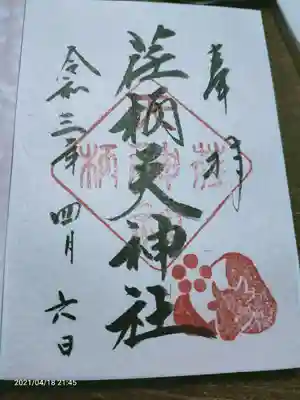 奉拝
荏柄天神社
令和三年四月六日
2021/04/18 21:45